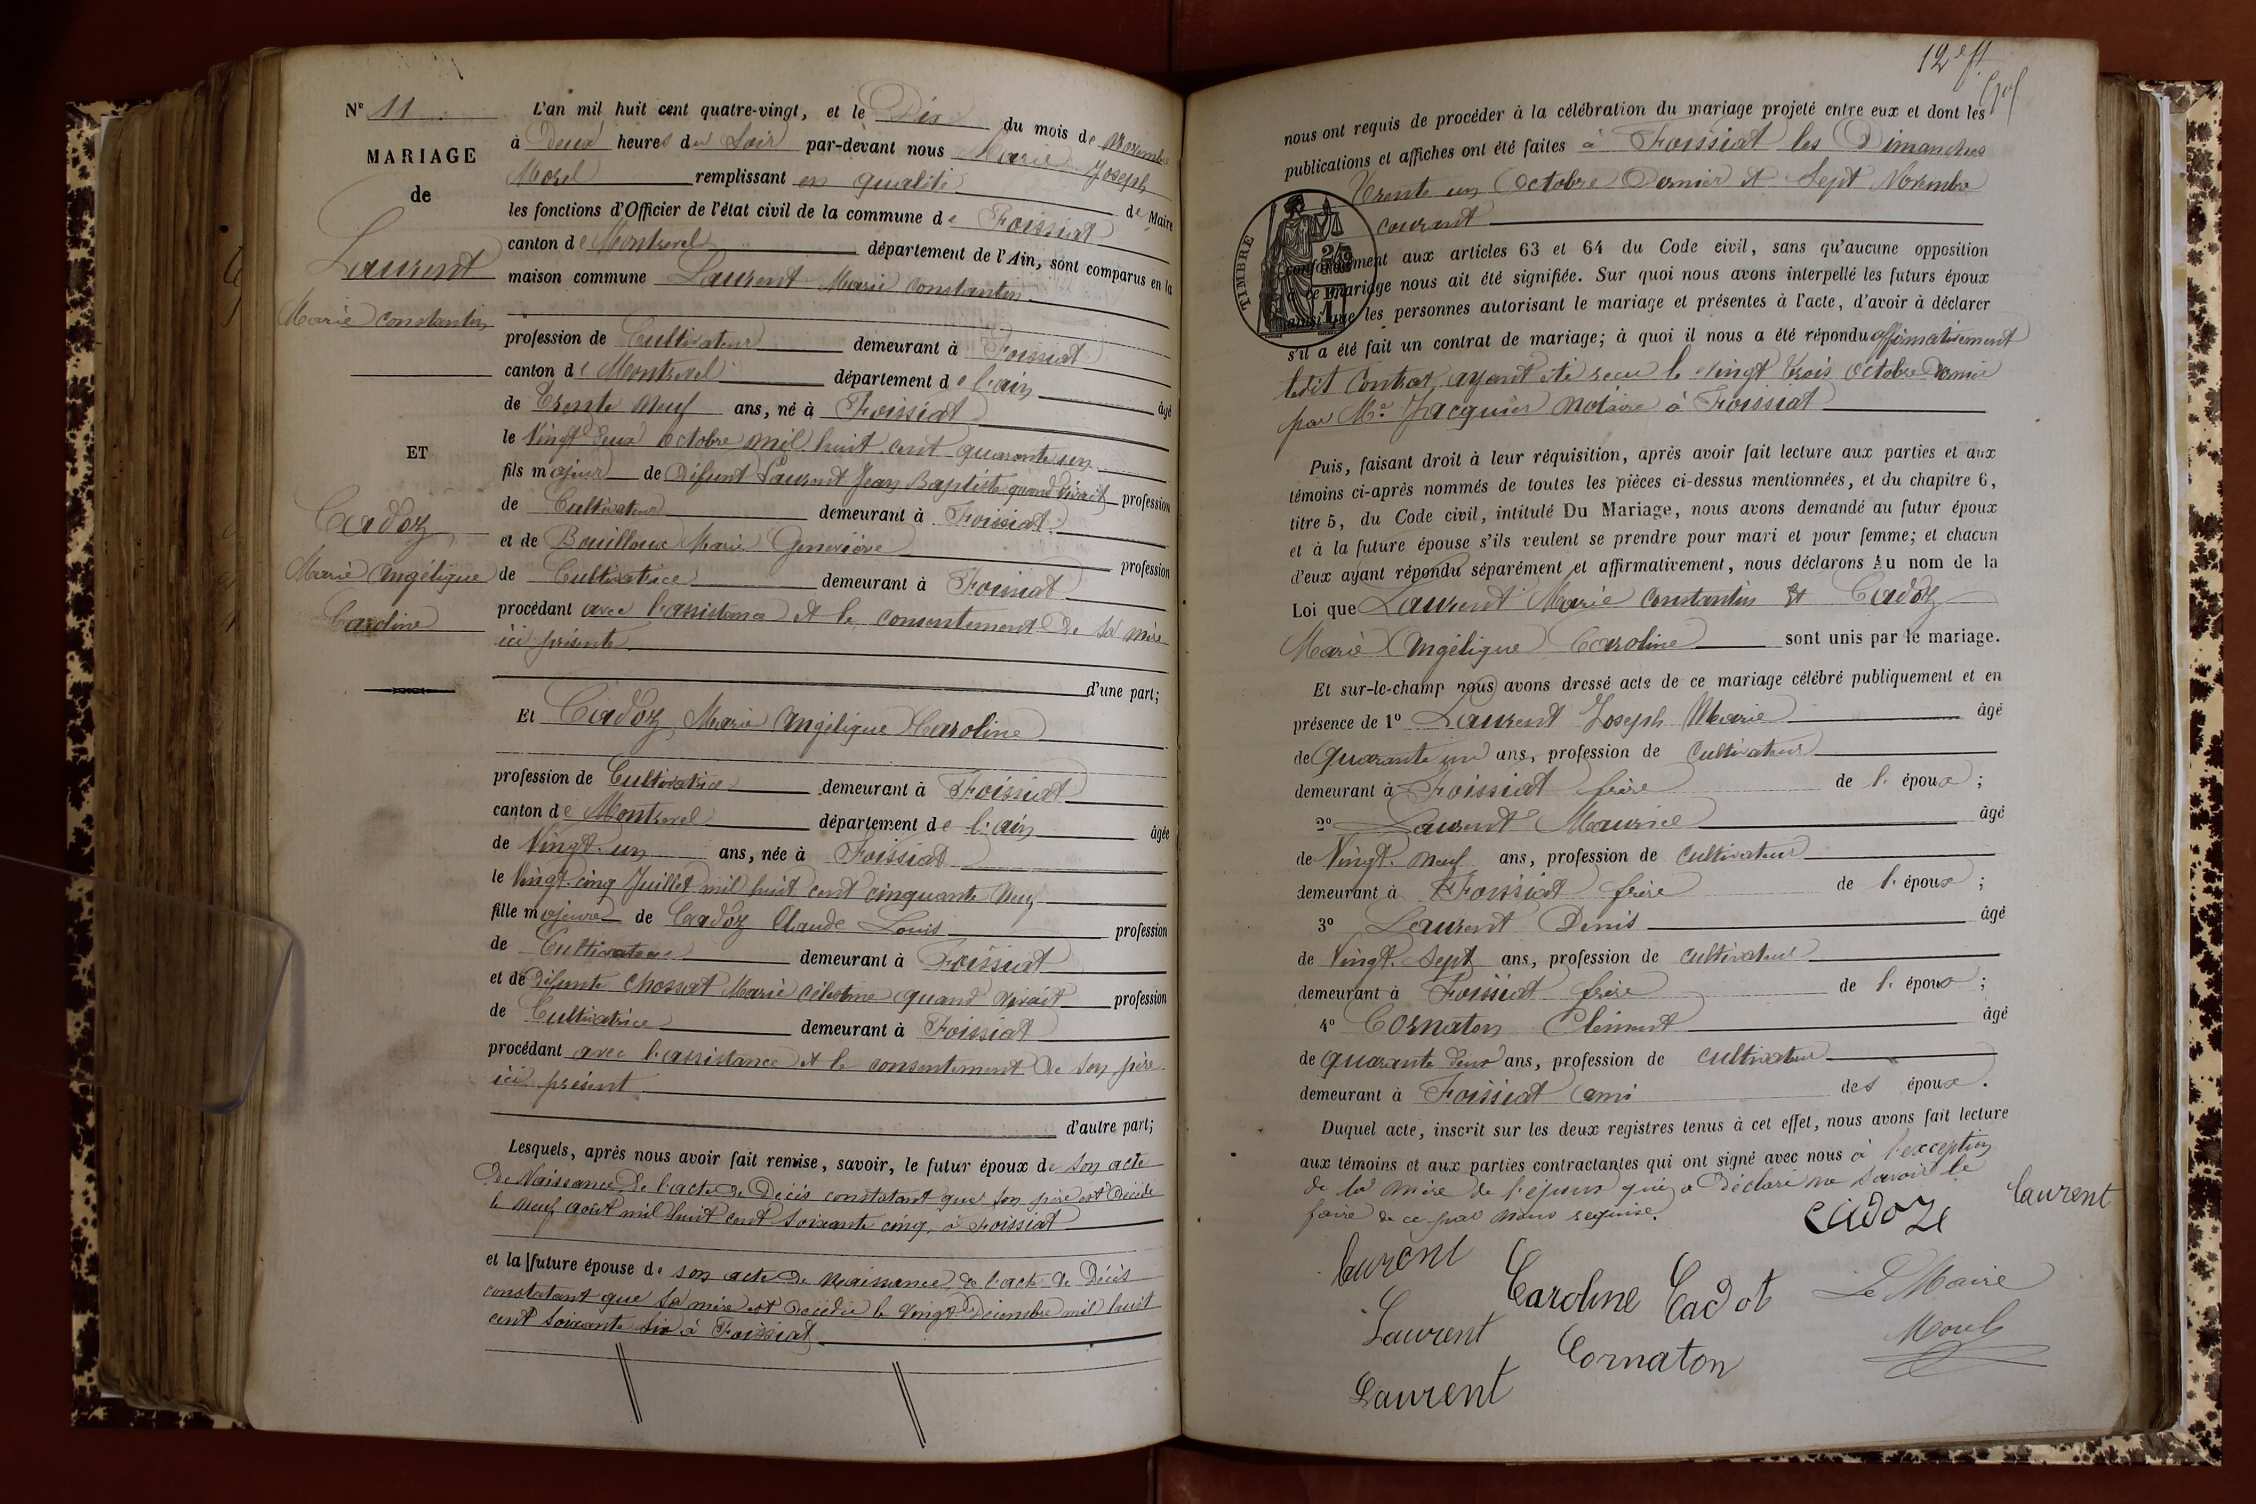 N° 11
MARIAGE
de
Laurent
Marie constantin
ET
Cadoz
Marie Angélique
Caroline
L'an mil huit cent quatre-vingt, et le Dix du mois de Novembre
à Deux heures du Soir par-devant nous Marie Joseph
Morel remplissant en qualité de Maire
les fonctions d'Officier de l'état civil de la commune de Foissiat
canton de Montrevel département de l'Ain, sont comparus en la
maison commune Laurent Marie Constantin
profession de Cultivateur demeurant à Foissiat
canton de Montrevel département de l'ain âgé
de Trente Neuf ans, né à Foissiat
le Vingt deux octobre mil huit cent quarante un
fils majeur de Défunt Laurent Jean Baptiste quand vivait profession
de Cultivateur demeurant à Foissiat
et de Bouilloux Marie Geneviève profession
de Cultivatrice demeurant à Foissiat
procédant avec l'assistance et le consentement de sa mère
ici présente
d'une part;
Et Cadoz Marie Angélique Caroline
profession de Cultivatrice demeurant à Foissiat
canton de Montrevel département de l'ain âgée
de Vingt-un ans, née à Foissiat
le Vingt-cinq Juillet mil huit cent cinquante Neuf
fille majeure de Cadoz Claude Louis profession
de Cultivateur demeurant à Foissiat
et de Défunte Chossat Marie célestine quand vivait profession
de Cultivatrice demeurant à Foissiat
procédant avec l'assistance et le consentement de son père
ici présent
d'autre part;
Lesquels, après nous avoir fait remise, savoir, le futur époux de son acte
de Naissance de l'acte de Décès constatant que son père est Décédé
le neuf août mil huit cent soixante cinq, à Foissiat
et la future épouse de son acte de naissance, de l'acte de Décès
constatant que sa mère est Décédée le vingt Décembre mil huit
cent soixante six à Foissiat
12e ft
nous ont requis de procéder à la célébration du mariage projeté entre eux et dont les
publications et affiches ont été faites à Foissiat les Dimanches
Trente un Octobre Dernier et Sept Novembre
courant
TIMBRE
conformément aux articles 63 et 64 du Code civil, sans qu'aucune opposition
à ce mariage nous ait été signifiée. Sur quoi nous avons interpellé les futurs époux
ainsi que les personnes autorisant le mariage et présentes à l'acte, d'avoir à déclarer
s'il a été fait un contrat de mariage; à quoi il nous a été répondu affirmativement
ledit Contrat ayant été reçu le vingt trois octobre dernier
par Me Jacquier notaire à Foissiat
Puis, faisant droit à leur réquisition, après avoir fait lecture aux parties et aux
témoins ci-après nommés de toutes les pièces ci-dessus mentionnées, et du chapitre 6,
titre 5, du Code civil, intitulé Du Mariage, nous avons demandé au futur époux
et à la future épouse s'ils veulent se prendre pour mari et pour femme; et chacun
d'eux ayant répondu séparément et affirmativement, nous déclarons Au nom de la
Loi que Laurent Marie Constantin et Cadoz
Marie Angélique Caroline sont unis par le mariage.
Et sur-le-champ nous avons dressé acte de ce mariage célébré publiquement et en
présence de 1° Laurent Joseph Marie âgé
de quarante un ans, profession de cultivateur
demeurant à Foissiat frère de l'époux;
2° Laurent Maurice âgé
de Vingt-neuf ans, profession de cultivateur
demeurant à Foissiat frère de l'époux;
3° Laurent Denis âgé
de Vingt-Sept ans, profession de cultivateur
demeurant à Foissiat frère de l'époux;
4° Cornaton Clément âgé
de quarante deux ans, profession de cultivateur
demeurant à Foissiat ami des époux.
Duquel acte, inscrit sur les deux registres tenus à cet effet, nous avons fait lecture
aux témoins et aux parties contractantes qui ont signé avec nous à l'exception
de la mère de l'époux qui a déclaré ne savoir le
faire de ce par nous requise.
Cadoz Laurent
Laurent Caroline Cadot Le Maire
Laurent Cornaton Morel
Laurent